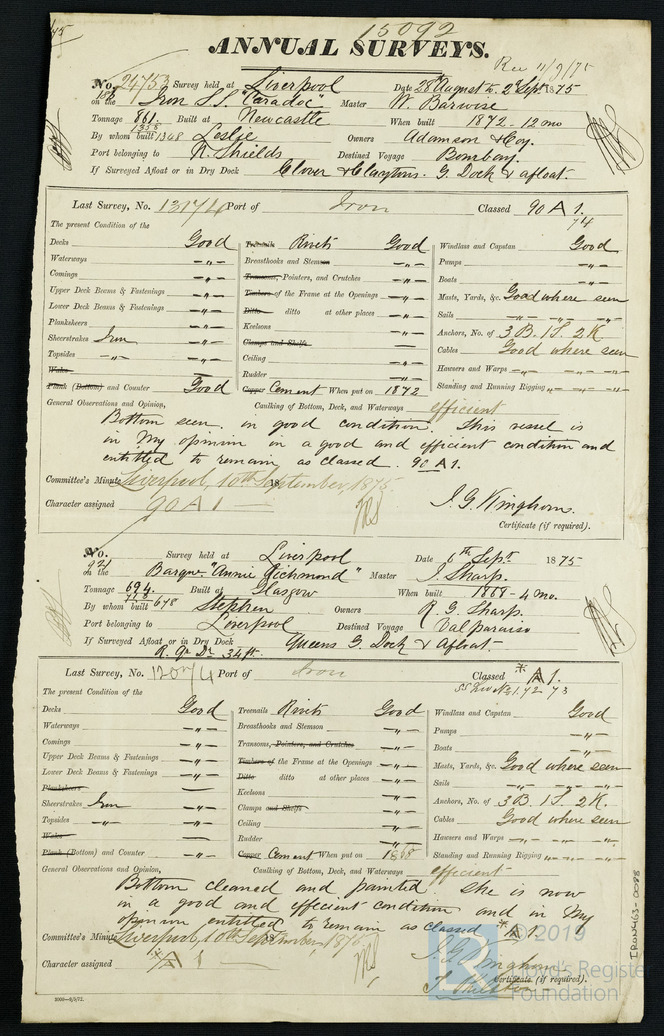 45
15092
ANNUAL SURVEYS.
Rec 11/9/75
No. 24753 Survey held at Liverpool Date 28th August to 2nd Sept 1875
on the Iron S.S. "Caradoc" Master W. Barwise
Tonnage 861. Built at Newcastle When built 1872 - 12 mo
1358
By whom built 1308 Leslie Owners Adamson & Coy.
Port belonging to N. Shields Destined Voyage Bombay.
If Surveyed Afloat or in Dry Dock Clover & Claytons. G. Dock & afloat.
Last Survey, No. 13174 Port of Iron Classed 90 A 1.
74
The present Condition of the
Decks Good Treenails Rivets Good Windlass and Capstan Good
Waterways -"- Breasthooks and Stemson -"- Pumps -"-
Comings -"- Transoms, Pointers, and Crutches -"- Boats -"-
Upper Deck Beams & Fastenings -"- Timbers of the Frame at the Openings -"- Masts, Yards, &c. Good where seen
Lower Deck Beams & Fastenings -"- Ditto ditto at other places -"- Sails -"- -"- -"-
Planksheers -"- Keelsons -"- Anchors, No. of 3 B. 1 S. 2 K
Sheerstrakes Iron -"- Clamps and Shelfs — Cables Good where seen
Topsides -"- -"- Ceiling -"- Hawsers and Warps -"- -"- -"-
Wales — Rudder -"- Standing and Running Rigging -"- -"- -"-
Plank (Bottom) and Counter Good Copper Cement When put on 1872
General Observations and Opinion, Caulking of Bottom, Deck, and Waterways efficient
Bottom seen. in good condition. This vessel is
in my opinion in a good and efficient condition and
entitled to remain as classed. 90 A 1.
Committee's Minute Liverpool, 10th September, 1875.
Character assigned 90 A 1 — J. G. Kinghorn.
Certificate (if required).
No. 921 Survey held at Liverpool Date 6th Sept. 1875
on the Barque "Annie Richmond" Master J. Sharp.
Tonnage 694. Built at Glasgow When built 1868 - 4 mo.
By whom built 678 Stephen Owners R. G. Sharp.
Port belonging to Liverpool Destined Voyage Valparaiso
If Surveyed Afloat or in Dry Dock Queens G. Dock & Afloat.
Last Survey, No. Port of Iron Classed A 1.
The present Condition of the
Decks Good Treenails Rivets Good Windlass and Capstan Good
Waterways -"- Breasthooks and Stemson -"- Pumps -"-
Comings -"- Transoms, Pointers, and Crutches -"- Boats -"-
Upper Deck Beams & Fastenings -"- Timbers of the Frame at the Openings -"- Masts, Yards, &c. Good where seen
Lower Deck Beams & Fastenings -"- Ditto ditto at other places -"- Sails -"- -"- -"-
Planksheers — Keelsons -"- Anchors, No. of 3 B. 1 S. 2 K.
Sheerstrakes Iron -"- Clamps and Shelfs -"- Cables Good where seen
Topsides -"- -"- Ceiling -"- Hawsers and Warps -"- -"- -"-
Wales — Rudder -"- Standing and Running Rigging -"- -"- -"-
Plank (Bottom) and Counter -"- Copper Cement When put on 1868
General Observations and Opinion, Caulking of Bottom, Deck, and Waterways efficient
Bottom cleaned and painted. She is now
in a good and efficient condition and in my
opinion entitled to remain as classed A 1.
Committee's Minute Liverpool, 10th September, 1875
Character assigned A 1 — J. G. Kinghorn
Certificate (if required).
IRON463-0088
© 2019
Lloyd's Register
Foundation